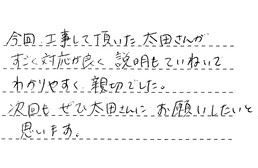 今回 工事して頂いた 太田さんが
すごく対応が良く 説明もていねいで
わかりやすく 親切でした。
次回も ぜひ太田さんに お願いしたいと
思います。